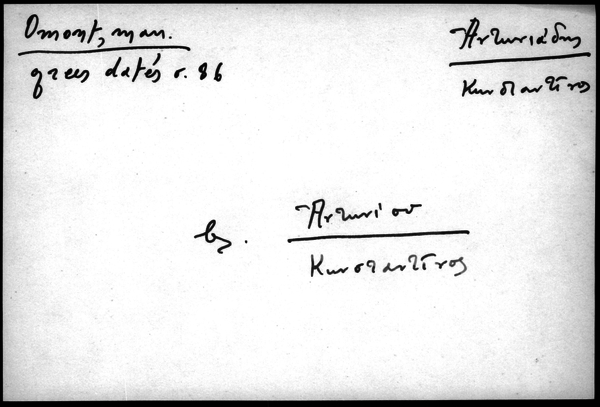 Omont, man.
grecs datés σ. 86
Ἀντωνιάδης
Κωνσταντῖνος
βλ.
Ἀντωνίου
Κωνσταντῖνος